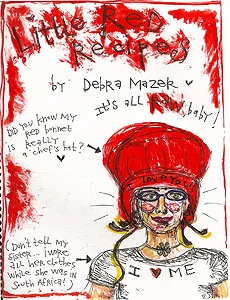 Little Red
Recipes
by Debra Mazer
It's all RAW, baby!
Did you know my
red bonnet
is really
a chef's hat?
I Love You!
(Don't tell my
sister... I wore
all her clothes
while she was in
South Africa!)
I ♥ ME